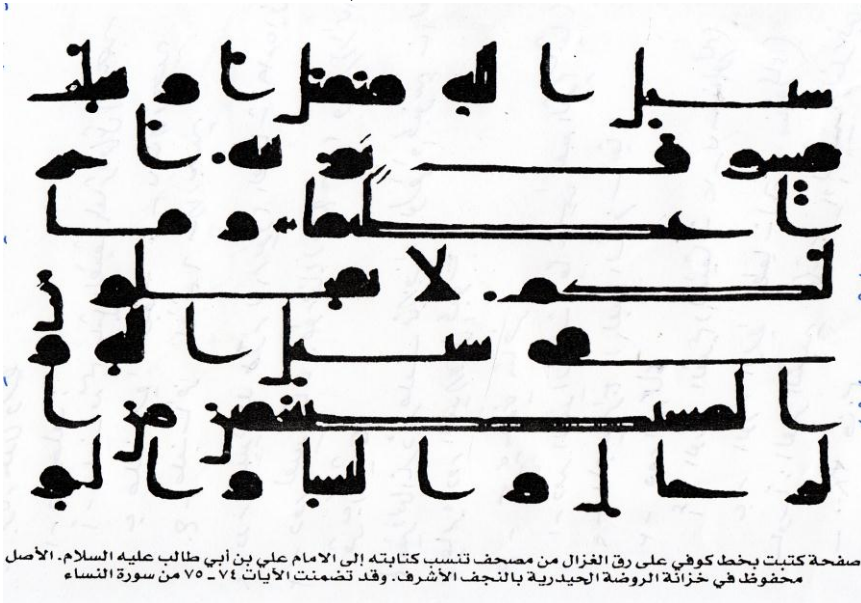 سبيل الله فيقتل او يغلب
فسوف نوتيه اجر
ا عظيما وما
لكم لا تقتلون
في سبيل الله و
المستضعفين من ا
لرجال والنسا والو
صفحة كتبت بخط كوفي على رق الغزال من مصحف تنسب كتابته إلى الامام علي بن أبي طالب عليه السلام. الأصل
محفوظ في خزانة الروضة الحيدرية بالنجف الأشرف. وقد تضمنت الأيات ٧٤ - ٧٥ من سورة النساء